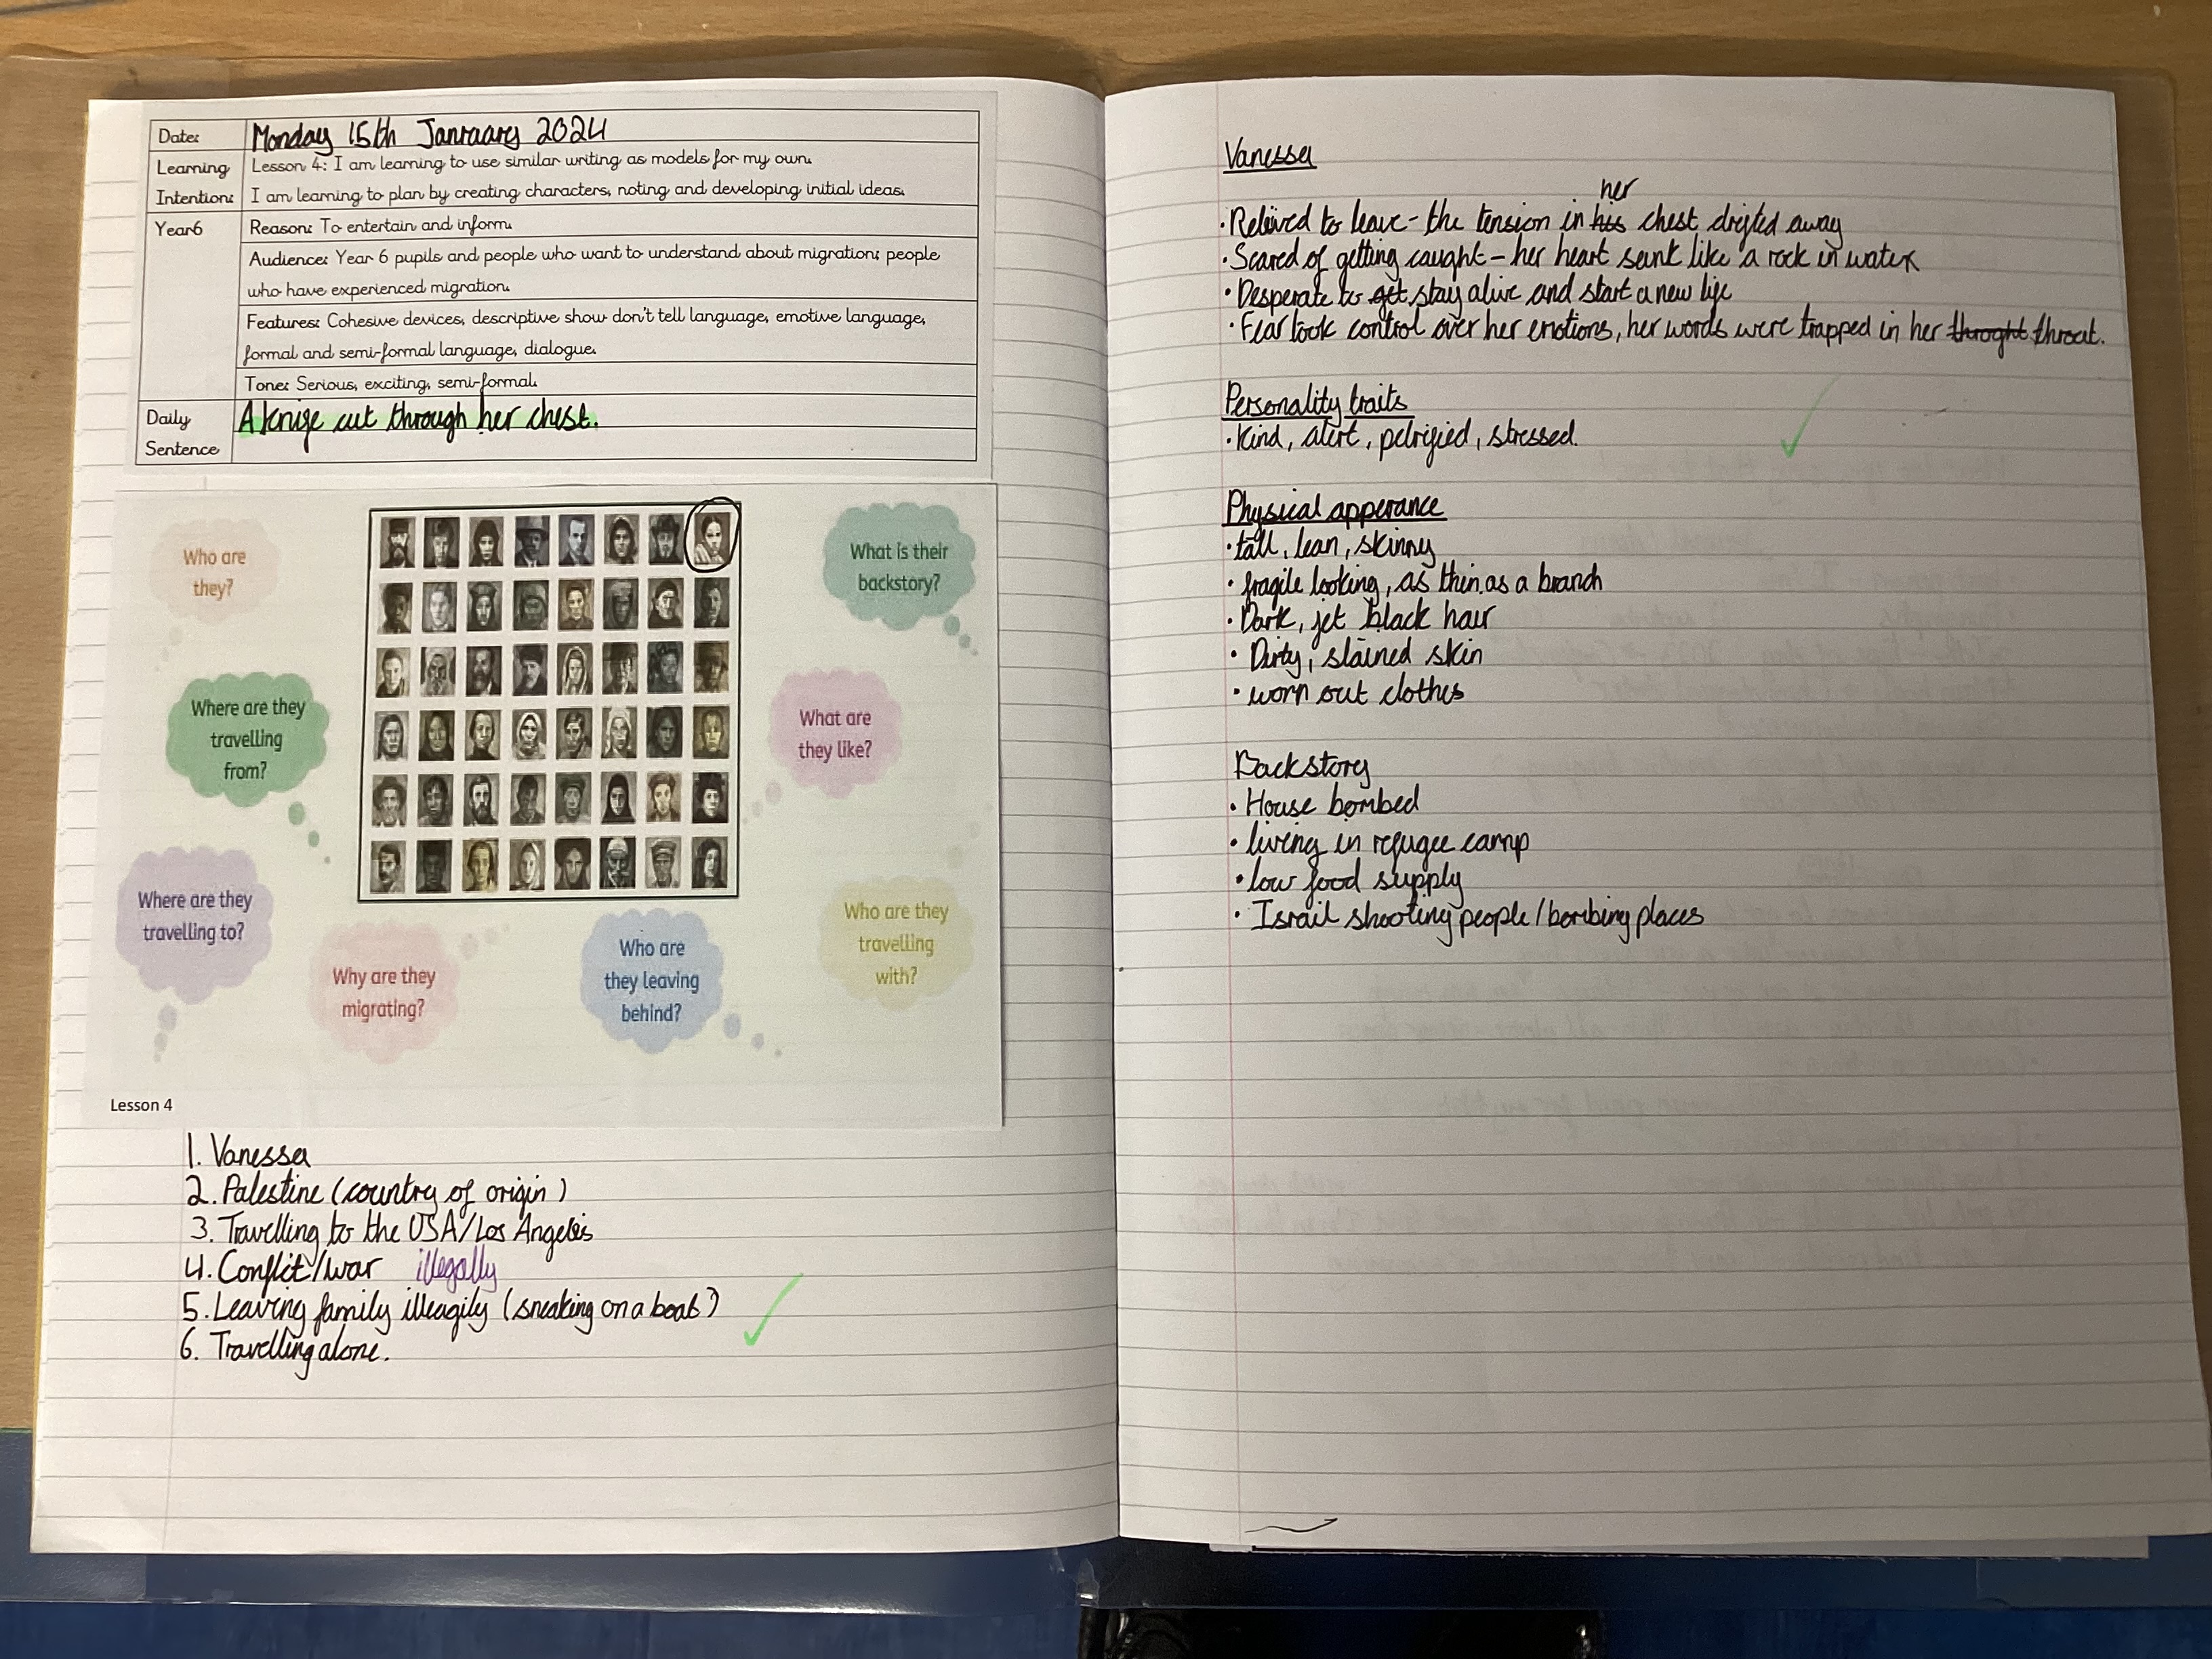 Date:
Monday 15th Janraary 2024
Learning
Intention:
Lesson 4: I am learning to use similar writing as models for my own.
I am learning to plan by creating characters, noting and developing initial ideas.
Year6
Reason: To entertain and inform.
Audience: Year 6 pupils and people who want to understand about migration; people
who have experienced migration.
Features: Cohesive devices, descriptive show don't tell language, emotive language,
formal and semi-formal language, dialogue.
Tone: Serious, exciting, semi-formal.
Daily
Sentence
A knife cut through her chest.
Who are
they?
What is their
backstory?
Where are they
travelling
from?
What are
they like?
Where are they
travelling to?
Why are they
migrating?
Who are
they leaving
behind?
Who are they
travelling
with?
Lesson 4
1. Vanessa
2. Palestine (country of origin)
3. Travelling to the USA/Los Angeles
4. Conflit/war illegally
5. Leaving family illeagily (sneaking on a boat)
6. Travelling alone.
Vanessa
her
· Relieved to leave - the tension in his chest drifted away
· Scared of getting caught - her heart sunk like a rock in water
· Desperate to get stay alive and start a new life
· Fear took control over her emotions, her words were trapped in her throght throat.
Personality traits
· Kind, alert, petrified, stressed.
Physical apperance
· tall, lean, skinny
· fragile looking, as thin as a branch
· Dark, jet black hair
· Dirty, stained skin
· worn out clothes
Backstory
· House bombed
· living in refugee camp
· low food supply
· Israil shooting people/bombing places